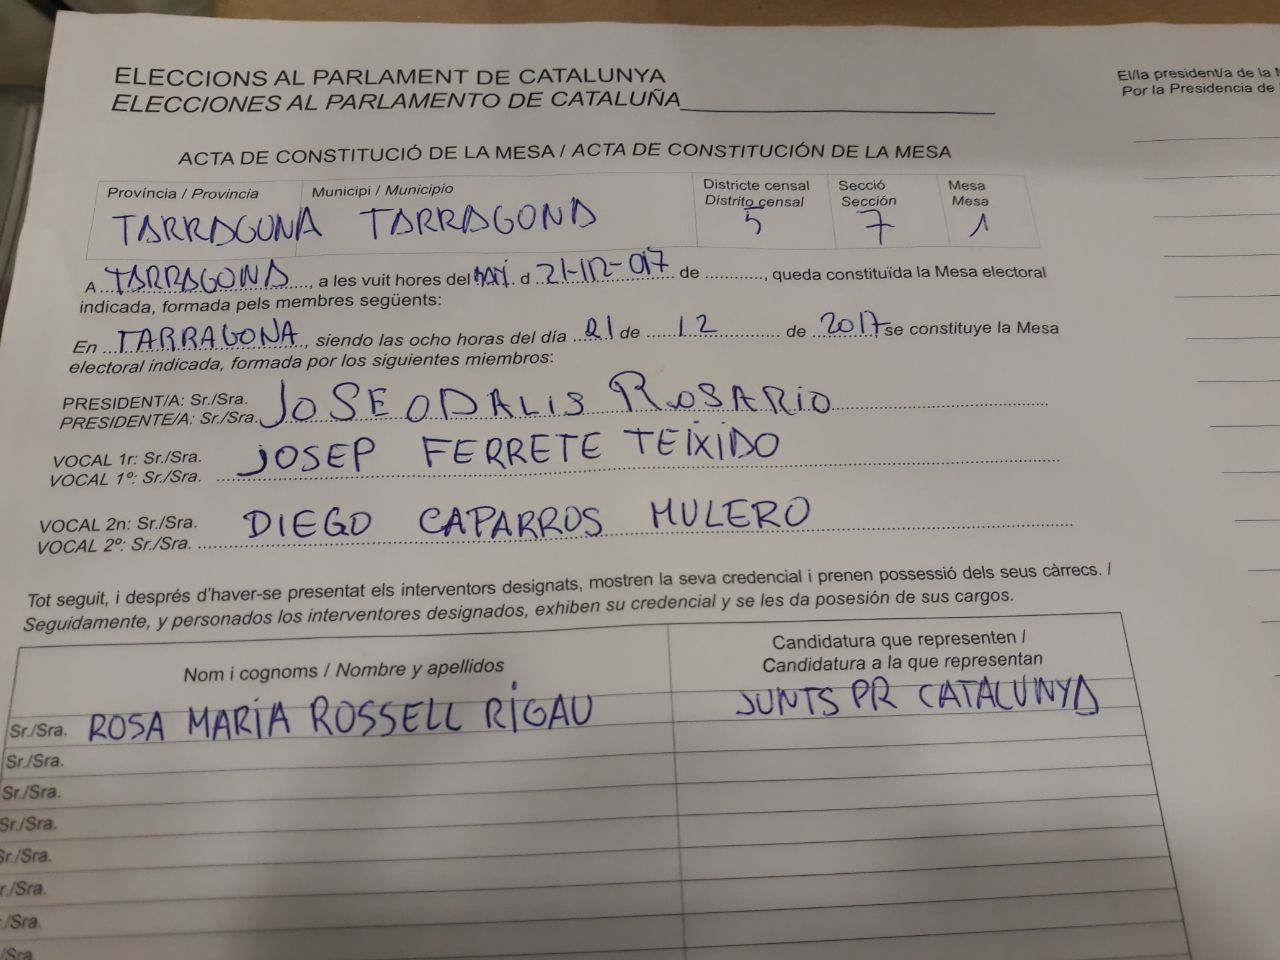 ELECCIONS AL PARLAMENT DE CATALUNYA
ELECCIONES AL PARLAMENTO DE CATALUÑA
El/la president/a de la
Por la Presidencia de
ACTA DE CONSTITUCIÓ DE LA MESA / ACTA DE CONSTITUCIÓN DE LA MESA
Província / Provincia Municipi / Municipio Districte censal Secció Mesa
Distrito censal Sección Mesa
TARRAGONA TARRAGONA 5 7 1
A TARRAGONA, a les vuit hores del d 21-12-017 de ..........., queda constituïda la Mesa electoral
indicada, formada pels membres següents:
En TARRAGONA, siendo las ocho horas del día 21 de 12 de 2017 se constituye la Mesa
electoral indicada, formada por los siguientes miembros:
PRESIDENT/A: Sr./Sra.
PRESIDENTE/A: Sr./Sra. JOSE ODALIS ROSARIO
VOCAL 1r: Sr./Sra. JOSEP FERRETE TEIXIDO
VOCAL 1º: Sr./Sra.
VOCAL 2n: Sr./Sra. DIEGO CAPARROS MULERO
VOCAL 2º: Sr./Sra.
Tot seguit, i després d'haver-se presentat els interventors designats, mostren la seva credencial i prenen possessió dels seus càrrecs. /
Seguidamente, y personados los interventores designados, exhiben su credencial y se les da posesión de sus cargos.
Nom i cognoms / Nombre y apellidos
Candidatura que representen /
Candidatura a la que representan
Sr./Sra. ROSA MARÍA ROSSELL RIGAU JUNTS PR CATALUNYA
Sr./Sra.
Sr./Sra.
Sr./Sra.
Sr./Sra.
r./Sra.
./Sra.
/Sra.